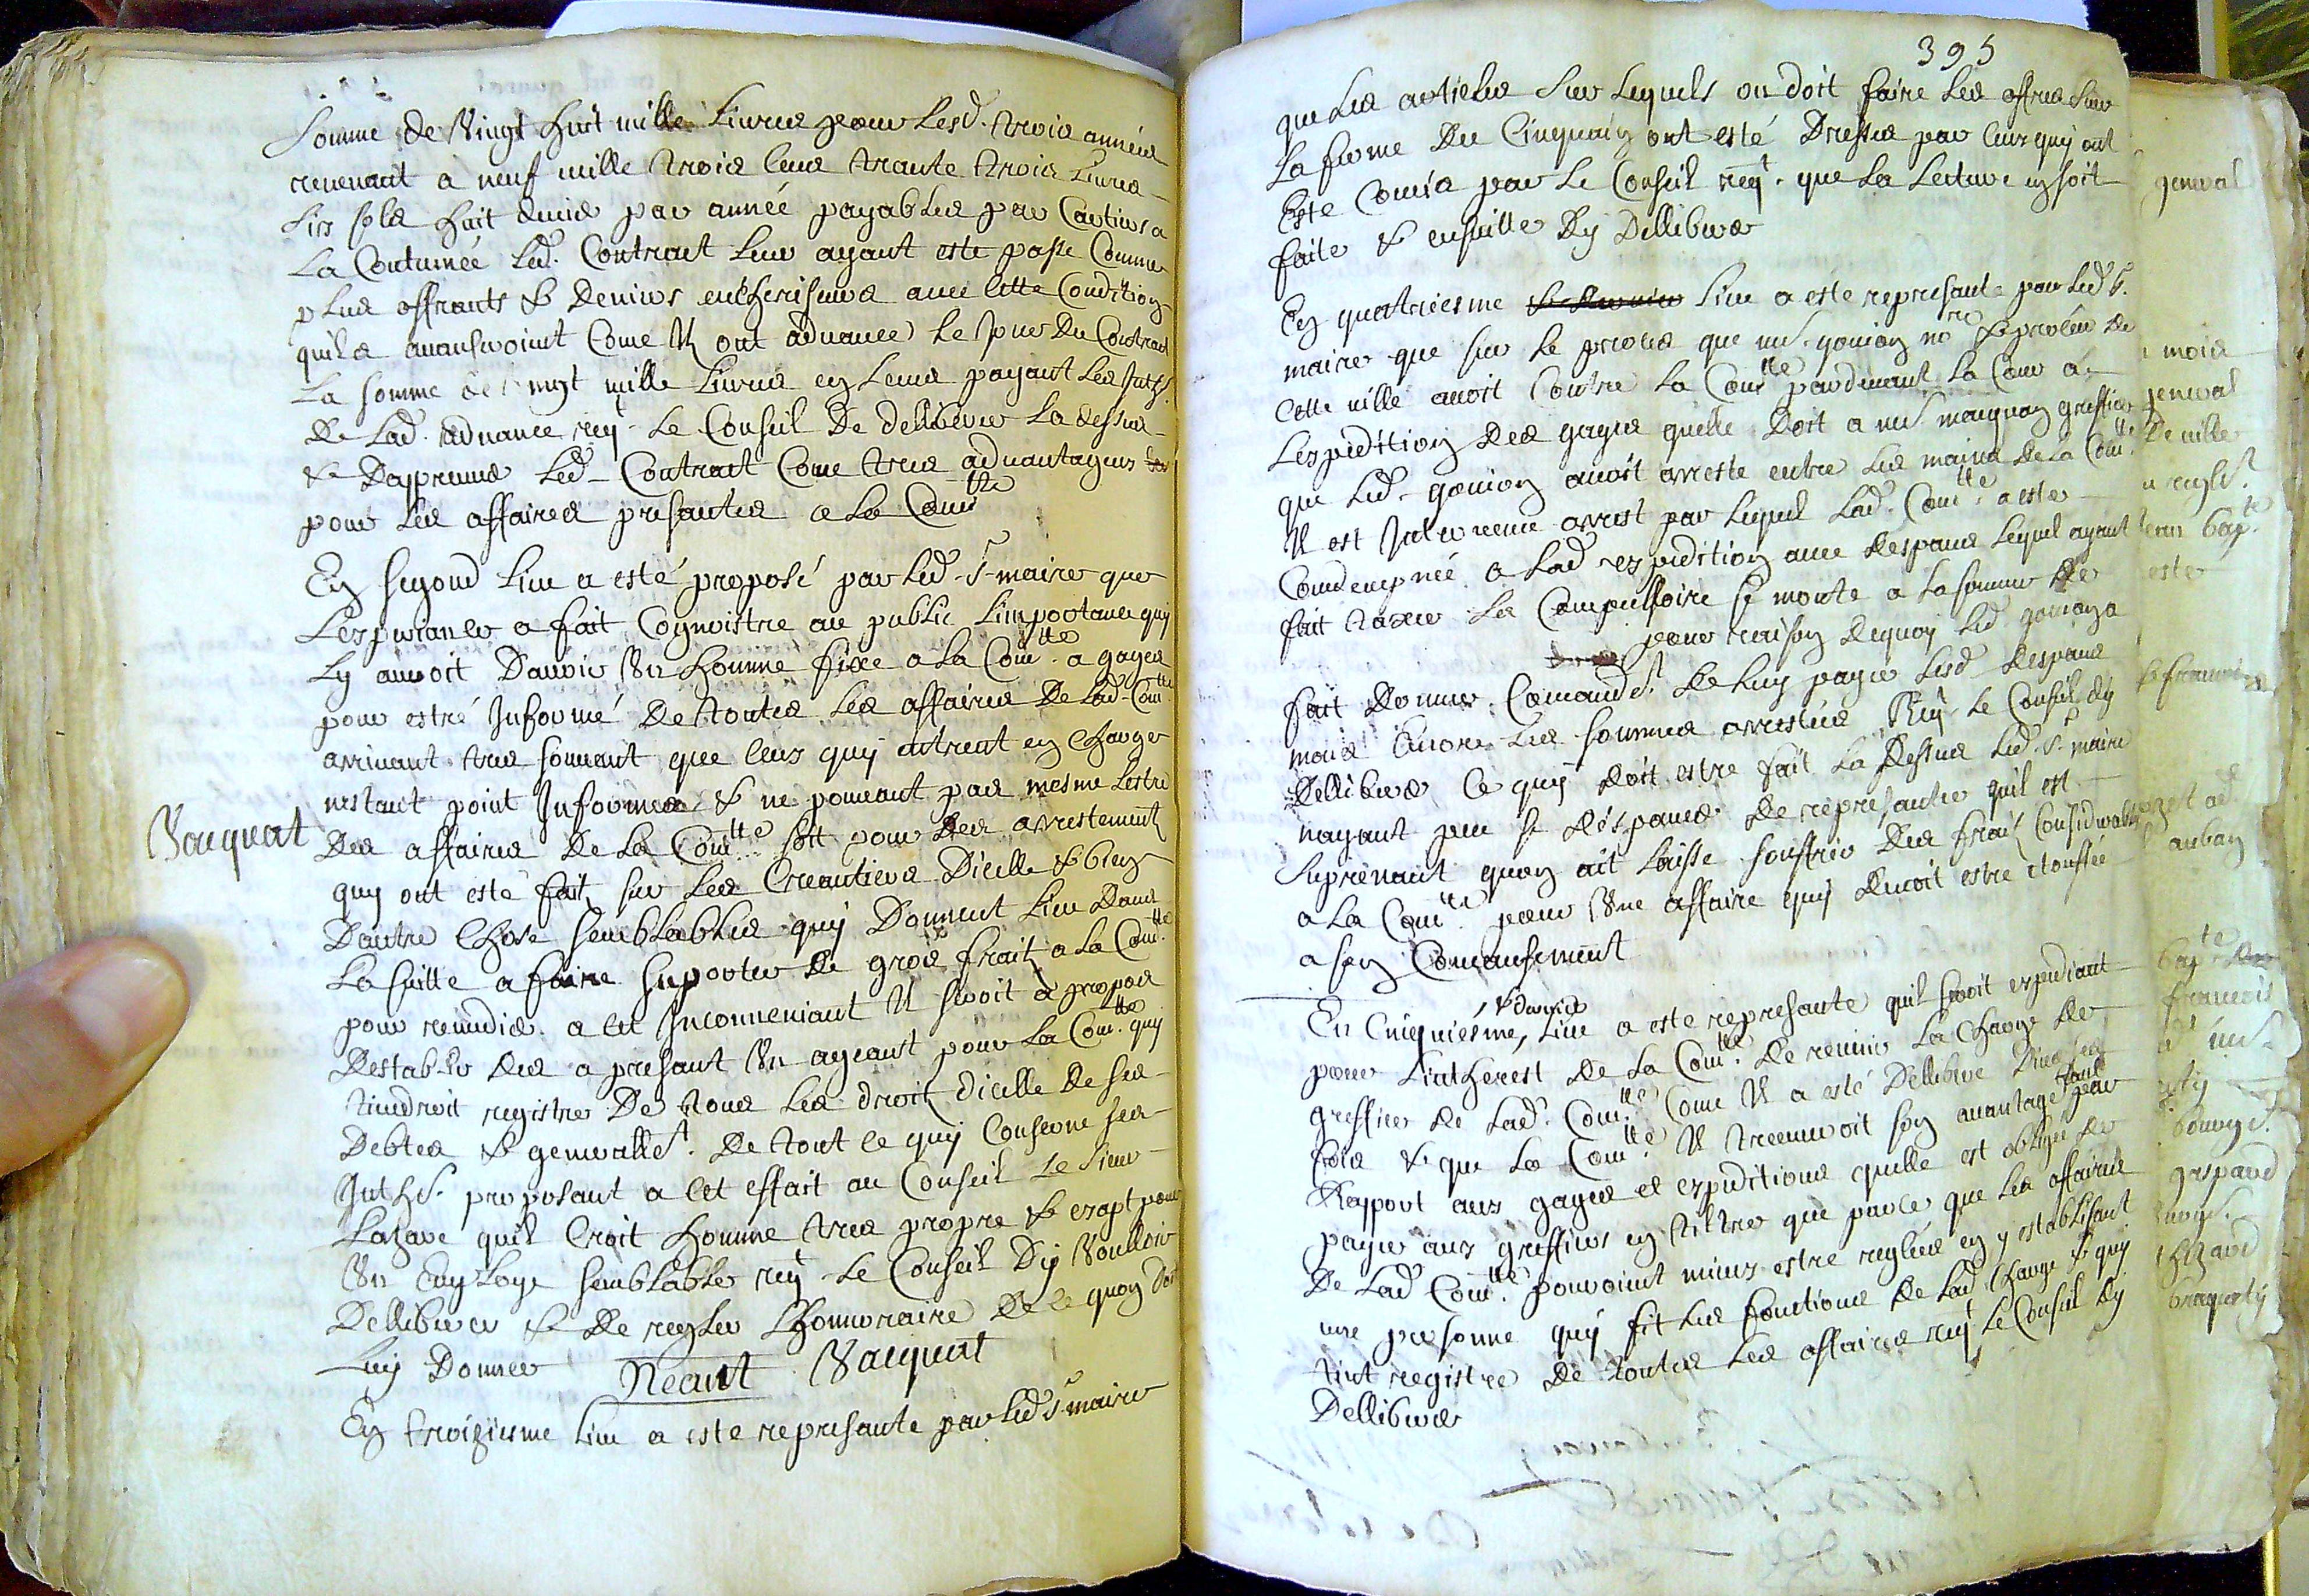 somme de Vingt huit mille Livres pour lesd. trois années
revenant a neuf mille trois cens trante trois Livres
six sols huit deniers par année payables par cartiers a
la coutumée led. Contract leur ayant esté passé Comme
plus offrants & deniers encherisseurs avec cette Condition
quils avanseroint Come Il ont advancé le jour du Contract
la somme de vingt mille Livres en Leurs payant les Inths.
de lad. advance reqt. le Conseil de delliberer la dessus
& dapreuver led. Contract Come tres advantageus
pour les affaires presantes a la Comtté
En segond Lieu a esté proposé par led. sr. maire que
Lexperiance a fait Cognoistre au public Limportance quy
Ly auroit Davoir Un homme fixe a la Comtté. a gages
pour estre Informé De toutes les affaires De lad. Comtté
arrivant tres souvant que Ceux quy entrent en Charge
nestant point Informés & ne pouvant pas mesme Lestre
Vacquat
Des affaires De La Comtté. soit pour des arrestements
quy ont esté fait sur les Creantiers Dicelle & bien
Dautre Chose semblables quy Donnent Lieu Dans
La suitte a faire suporter de gros frait a la Comtté.
pour remedier a cet Inconveniant Il seroit a propos
Destablir des a presant Un ageant pour La Comtté. quy
tiendroit registre De tous les droit dicelle De ses
Debtes & generallet. De tout ce quy Conserne ses
Inths. proposant a cet effait au Conseil le sieur
Lazare quil Croit homme tres propre & exapt pour
Un Employe semblable reqt. le Conseil Dy Voulloir
Delliberer & de regler Lhonneraire De ce quon doit
Luy Donner Neant Vacquat
En troiziesme lieu a esté represanté par led. sr. maire
395
que les articles sur Lequels on doit faire les offres sur
La ferme Du Cinquain ont esté Dressés par ceux quy ont
Esté Comis par le Conseil reqt. que La Lecture en soit
faite & ensuitte Dy Delliberer
En quatriesme Lieu a esté represanté par led. sr.
maire que sur le procès que mr. gouion nore & procur de
cette ville avoit Contre la Comtté pardevant la Cour a
Lexpedition des gages quelle Doit a mr. mauguon greffier
que led. gouion avoit arresté entre les mains de la Comtté.
Il est Intervenu arrest par Lequel Lad. Comtté. a esté
Condempnée a lad. expedition avec despans Lequel ayant
fait taxer la Compulsoire se monte a la somme de
pour raison dequoy led. gouion a
fait Donner Comandet. De Luy payer lesd. despans
mais encore les sommes arrestées Reqt. le Conseil dy
Delliberer ce quy doit estre fait la Dessus led. sr. maire
nayant peu se dispancer De represanter quil est
suprenant quon ait laissé souffrir Des frait Considerables
a la Comtté. pour Une affaire quy devoit estre etouffée
a son Comansement
& dernier
En Cinquiesme, Lieu a esté represanté quil seroit expediant
pour Lintherest De la Comtté. De reunir La Charge De
greffier de Lad. Comtté. Come Il a esté Delliberé Diverses
fois & que la Comtté. Il treuveroit son avantage tant par
Rapport aux gages et expeditions quelle est obligée de
payer aux greffiers en tiltre que parce que les affaires
De Lad. Comtté. pouroint mieux estre reglées en y establissant
une personne quy fit les fonctions de lad. Charge & quy
tint registre De toutes les affaires reqt. le Conseil dy
Delliberer
general
mois
general
De ville
Bapte.
esté
& francois
auban
francois
gaspard